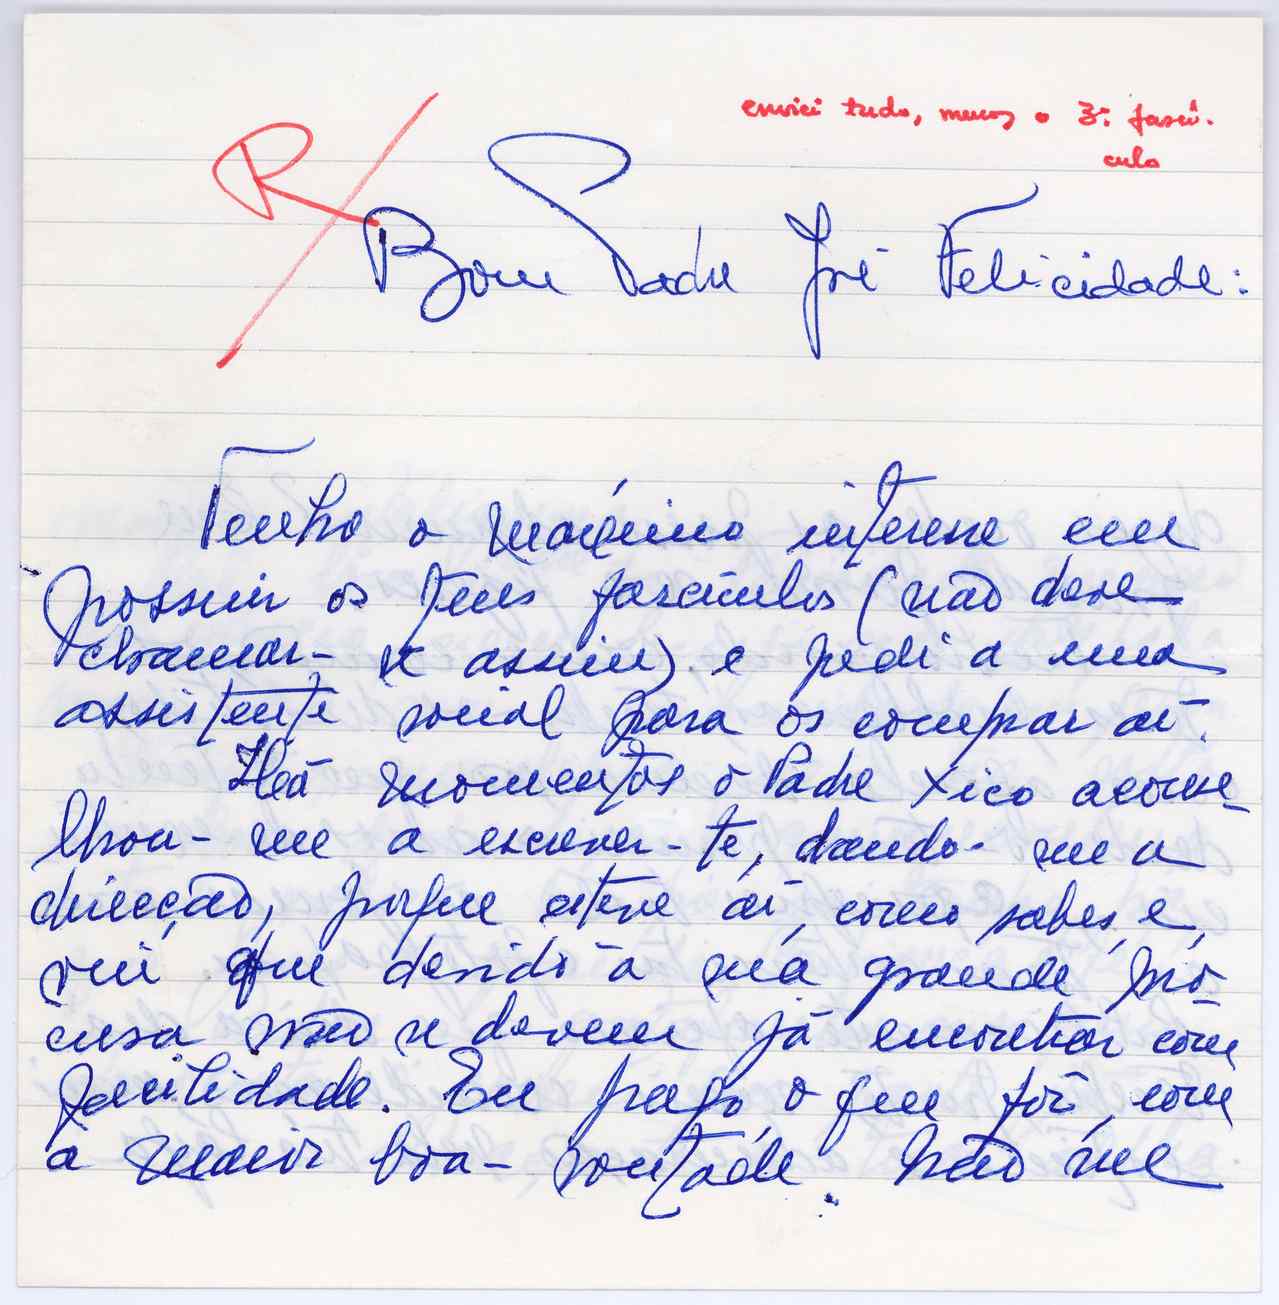 enviei tudo, menos o 3º fascí-
culo
R
Bom Padre José Felicidade:
Tenho o máximo interesse em
possuir os teus fascículos (não deve
chamar-se assim) e pedi a uma
assistente social para os comprar aí.
Há momentos o Padre Xico aconse-
lhou-me a escrever-te, dando-me a
direcção, porque esteve aí, como sabes, e,
viu que devido à sua grande pro-
cura não se devem já encontrar com
facilidade. Eu pago o que fôr, com
a maior boa-vontade. Não me